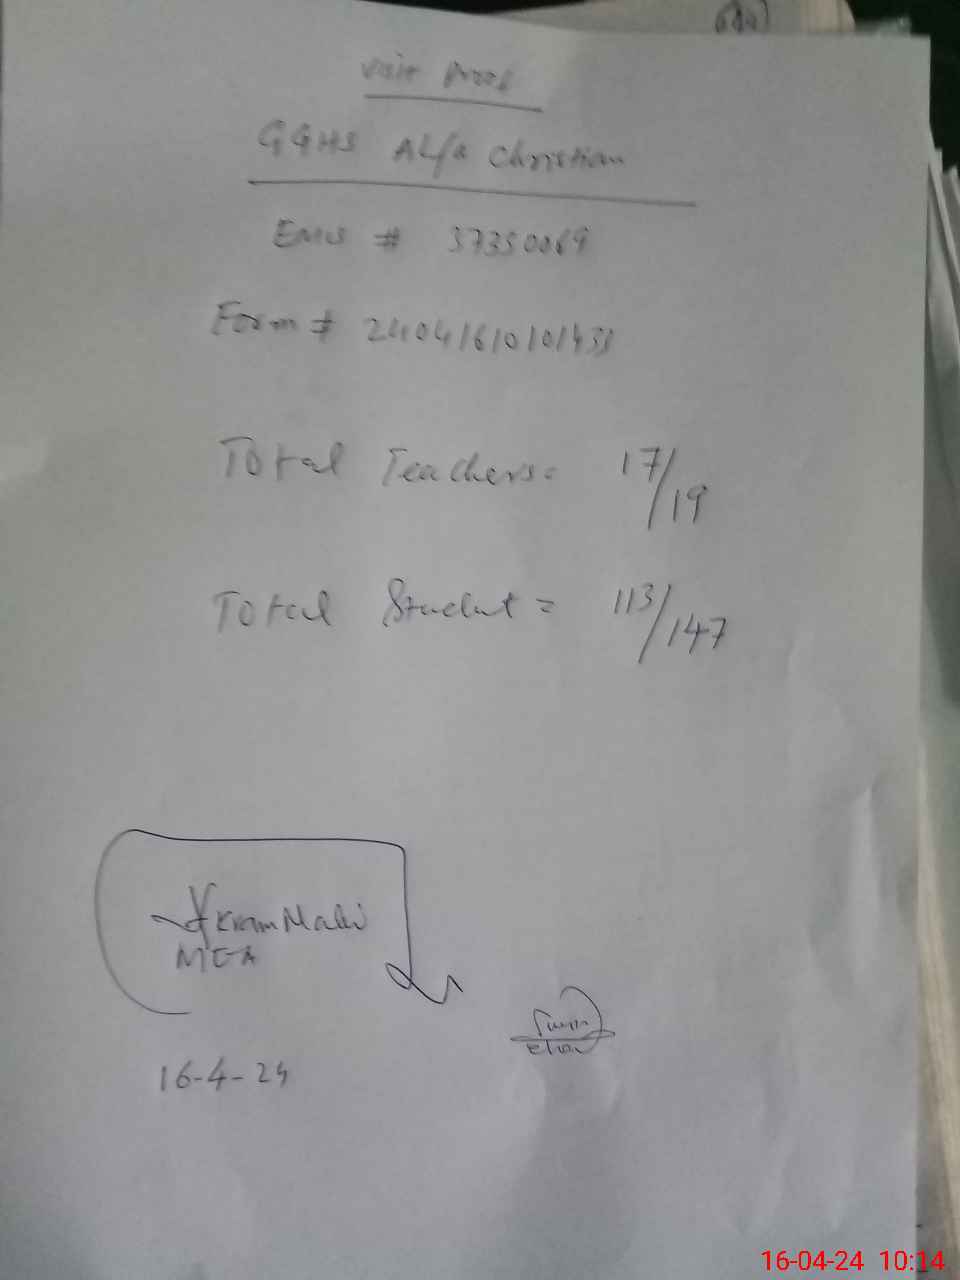 Visit Proof
GGHS Alfa Christian
Emis # 37350069
Form # 24041610101433
Total Teachers = 17/19
Total Student = 113/147
Akram
MEA
16-4-24
16-04-24 10:14